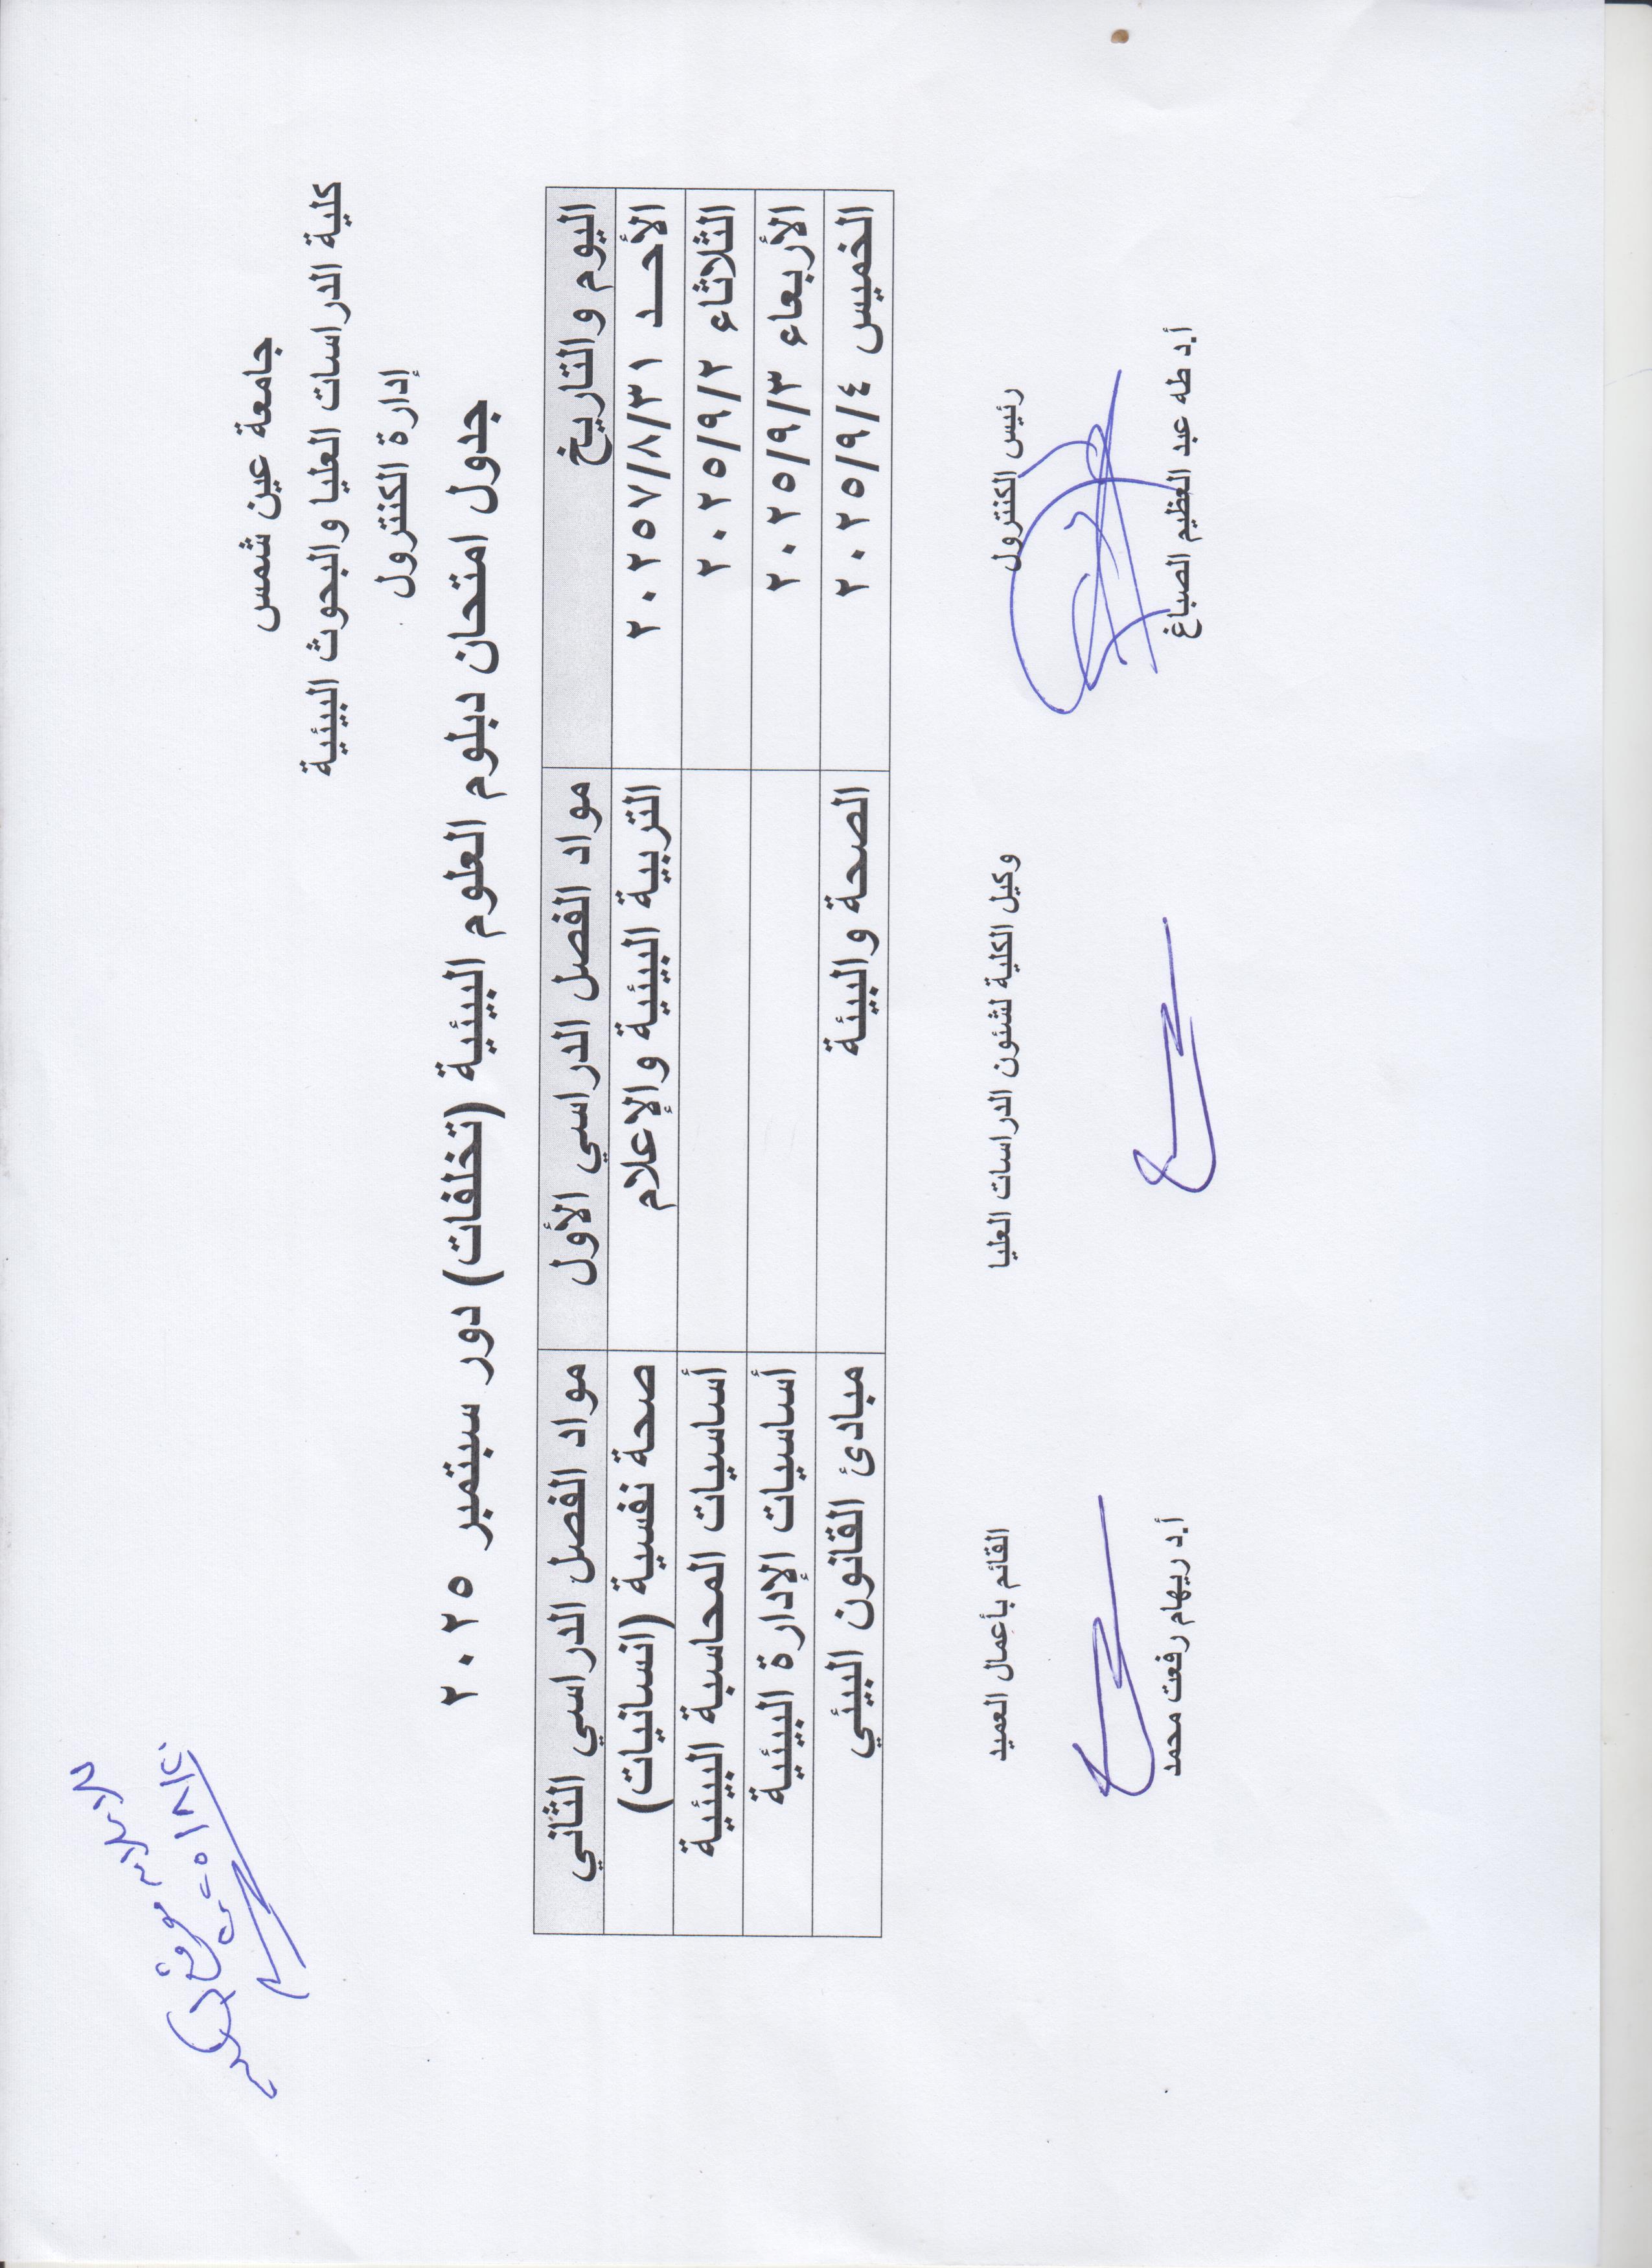 جامعة عين شمس
كلية الدراسات العليا والبحوث البيئية
إدارة الكنترول
جدول امتحان دبلوم العلوم البيئية (تخلفات) دور سبتمبر ٢٠٢٥
اليوم والتاريخ مواد الفصل الدراسي الأول مواد الفصل الدراسي الثاني
الأحــد ٢٠٢٥٧/٨/٣١ التربية البيئية والإعلام صحة نفسية (انسانيات)
الثلاثاء ٢٠٢٥/٩/٢ أساسيات المحاسبة البيئية
الأربعاء ٢٠٢٥/٩/٣ أساسيات الإدارة البيئية
الخميس ٢٠٢٥/٩/٤ الصحة والبيئة مبادئ القانون البيئي
رئيس الكنترول وكيل الكلية لشئون الدراسات العليا القائم بأعمال العميد
أ.د طه عبد العظيم الصباغ أ.د ريهام رفعت محمد